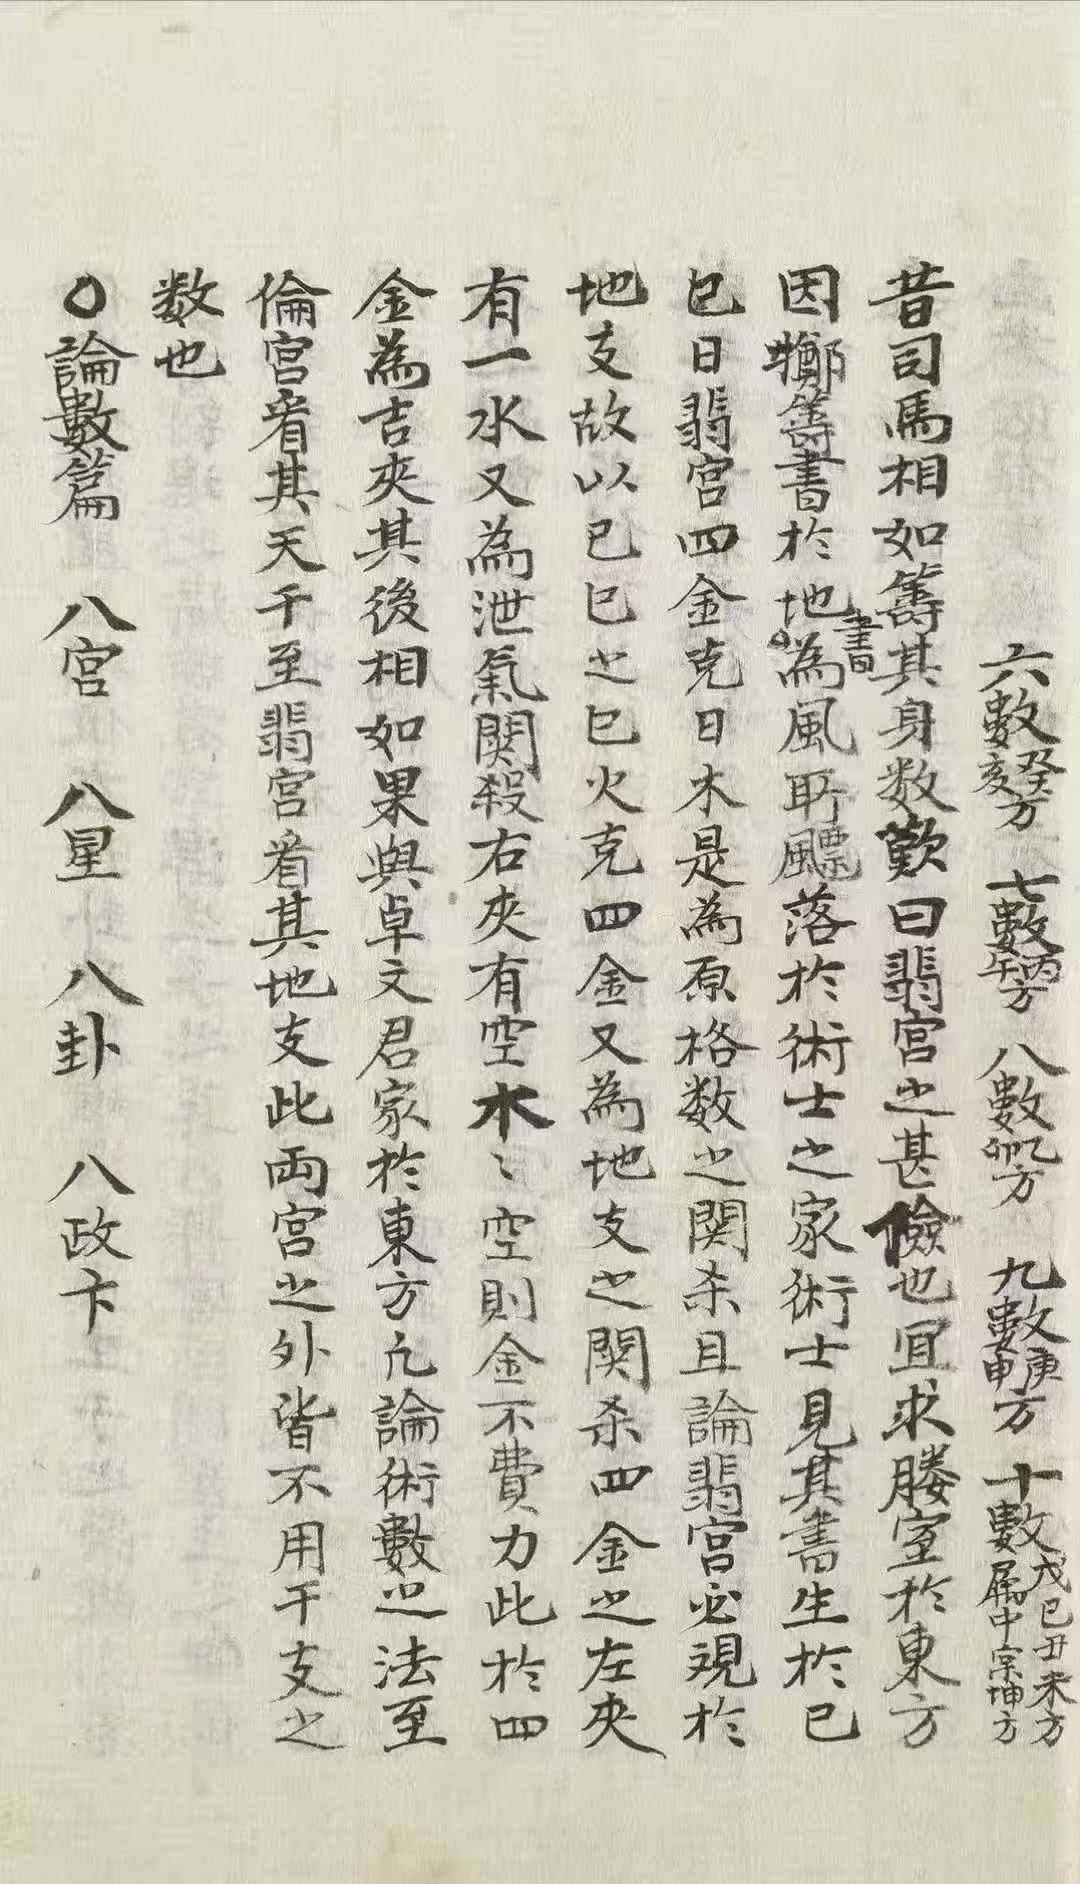 六數癸亥方 七數丙午方 八數乙卯方 九數庚申方 十數戊己丑未方屬中宗坤方
昔司馬相如籌其身数歎曰翡宫之甚儉也宜求媵室於東方
因擲籌書於地書為風所飄落於術士之家術士見其書生於己
巳日翡宫四金克日木是為原格数之関杀且論翡宫必視於
地支故以己巳之巳火克四金又為地支之関杀四金之左夾
有一水又為泄氣関殺右夾有空水〻空則金不費力此於四
金為吉夾其後相如果與卓文君家於東方凢論術數之法至
倫宫看其天干至翡宫看其地支此両宫之外皆不用干支之
数也
〇論數篇 八宫 八星 八卦 八政卞